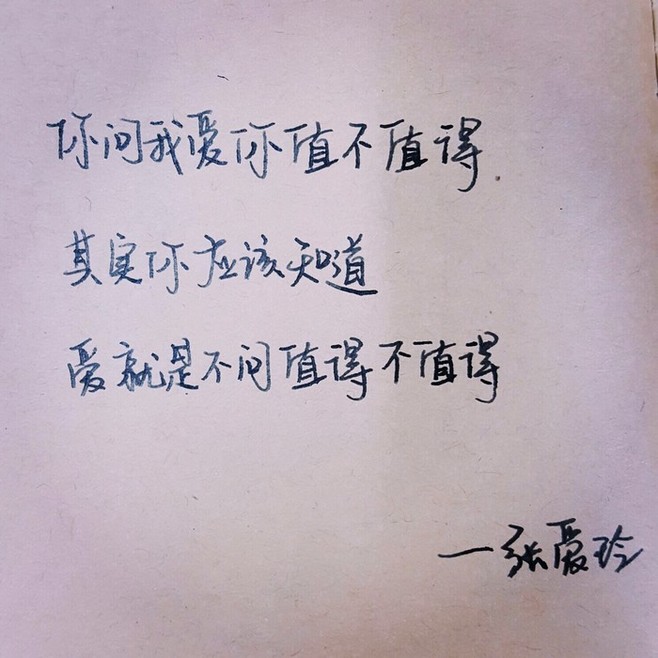 你问我爱你值不值得.
其实你应该知道
爱就是不问值得不值得
—张爱玲